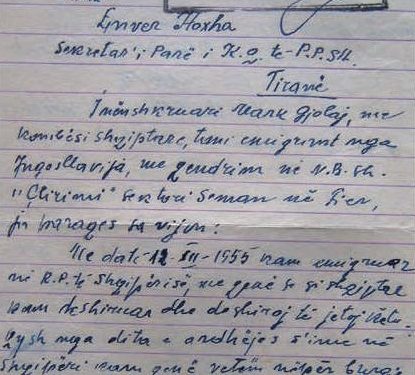 Enver Hoxha
Sekretar i Parë i K.Q. të P.P.SH.
Tiranë
I nënshkruari Mark Gjolaj, me
kombësi shqiptare, tani emigrant nga
Jugosllavija, me qendrim në N.B.sh.
"Çlirimi" sektori Seman në Fier,
ju paraqes sa vijon:
Me datë 12-XII-1955 kam emigruar
në R.P. të Shqipërisë, me qenë se si shqiptar
kam dëshiruar dhe dëshiroj të jetoj
qysh nga dita e ardhëjes s'ime në
Shqipëri kam qenë vetëm nëpër burgj